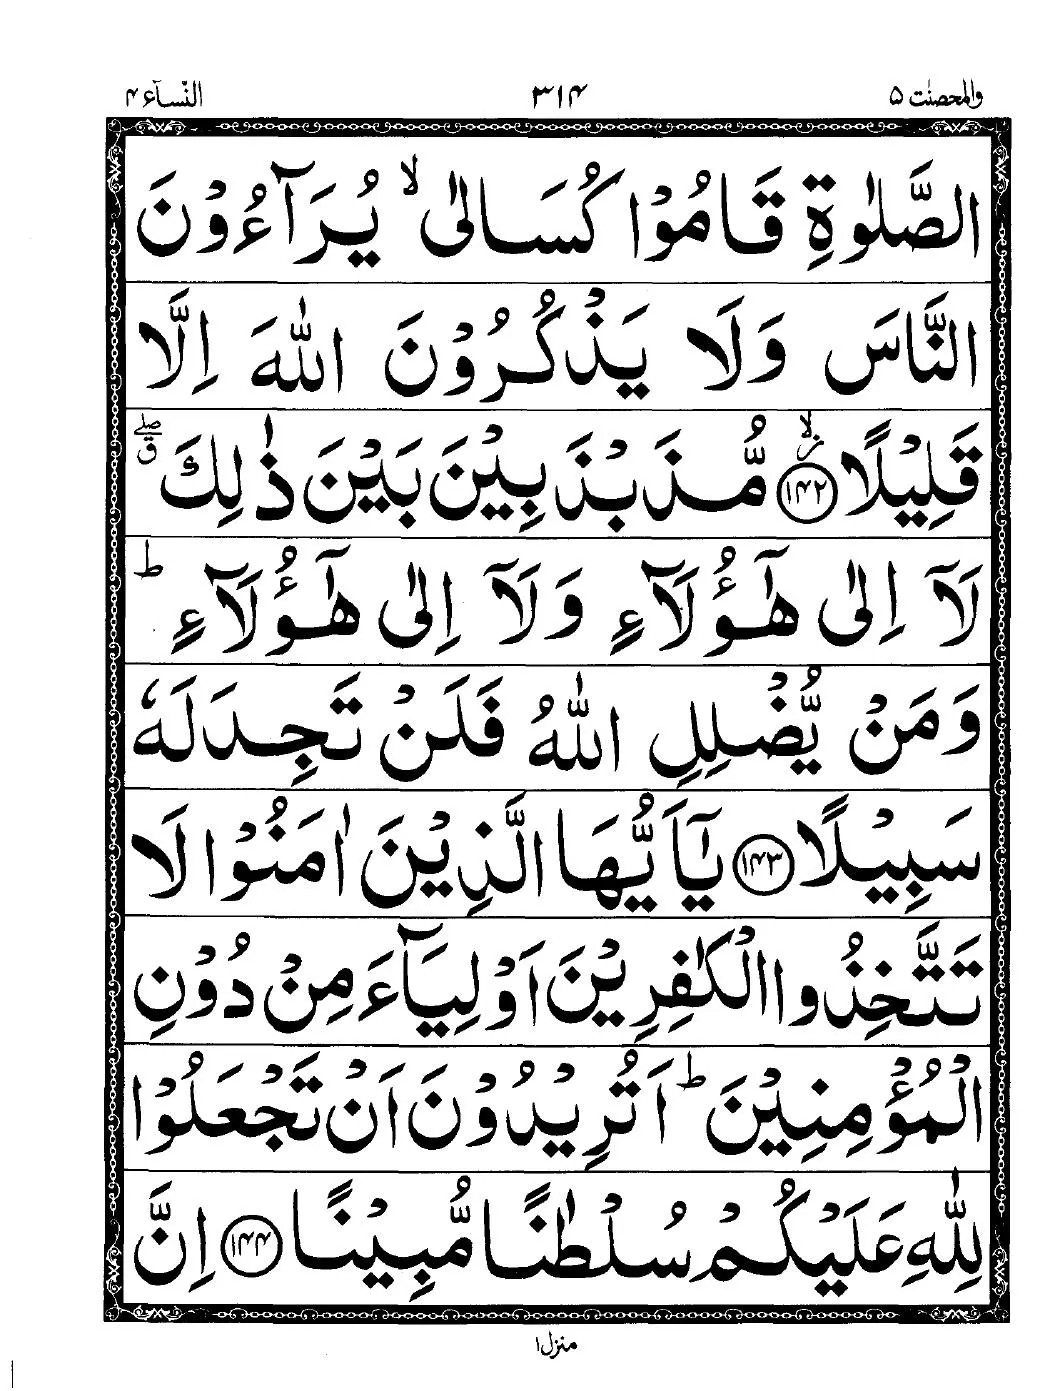 والمحصنٰت ۵ ۳۱۴ النّسآء ۴
الصَّلٰوةِ قَامُوْا كُسَالٰى ۙ يُرَآءُوْنَ
النَّاسَ وَلَا يَذْكُرُوْنَ اللّٰهَ اِلَّا
قَلِيْلًا ۙ۬ ﴿۱۴۲﴾ مُّذَبْذَبِيْنَ بَيْنَ ذٰلِكَ ۖ ق
لَآ اِلٰى هٰٓؤُلَآءِ وَلَآ اِلٰى هٰٓؤُلَآءِ ؕ
وَمَنْ يُّضْلِلِ اللّٰهُ فَلَنْ تَجِدَ لَهٗ
سَبِيْلًا ﴿۱۴۳﴾ يٰٓاَيُّهَا الَّذِيْنَ اٰمَنُوْا لَا
تَتَّخِذُوا الْكٰفِرِيْنَ اَوْلِيَآءَ مِنْ دُوْنِ
الْمُؤْمِنِيْنَ ؕ اَتُرِيْدُوْنَ اَنْ تَجْعَلُوْا
لِلّٰهِ عَلَيْكُمْ سُلْطٰنًا مُّبِيْنًا ﴿۱۴۴﴾ اِنَّ
منزل ۱